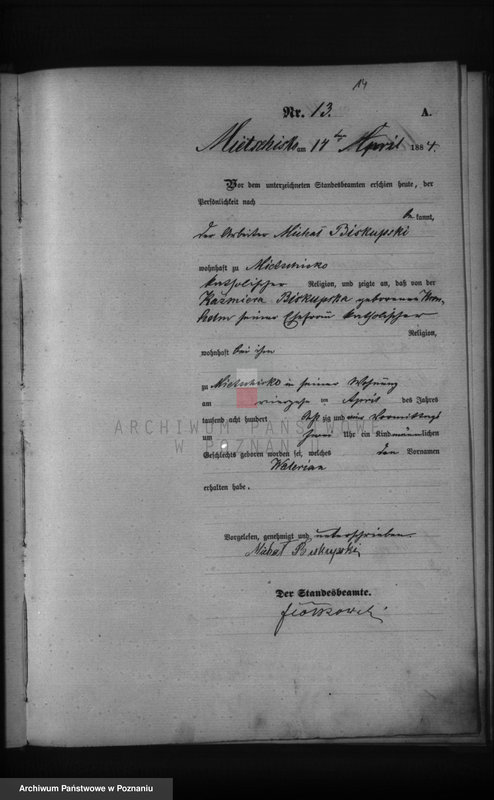 14
Nr. 13. A.
Mietschisko am 17ten April 1884.
Vor dem unterzeichneten Standesbeamten erschien heute, der
Persönlichkeit nach
be kannt,
der Arbeiter Michał Biskupski
wohnhaft zu Mietschisko
katholischer Religion, und zeigte an, daß von der
Kaźmiera Biskupska geborenen
seiner Ehefrau katholischer
Religion,
wohnhaft bei ihm
zu Mietschisko in seiner Wohnung
am vierzehn ten April des Jahres
tausend acht hundert acht zig und vier Vormittags
um zwei Uhr ein Kind männlichen
Geschlechts geboren worden sei, welches den Vornamen
Waleryan
erhalten habe.
Vorgelesen, genehmigt und unterschrieben
Michał Biskupski
Der Standesbeamte.
ARCHIWUM PAŃSTWOWE
W POZNANIU
Archiwum Państwowe w Poznaniu